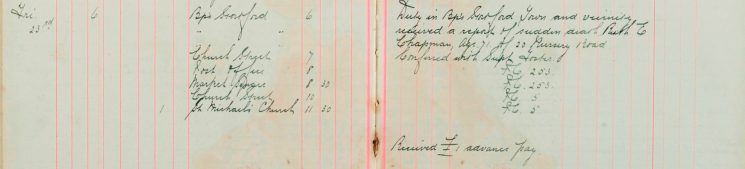 Fri 6 Bps Stortford 6 Duty in Bps Stortford Town and vicinity
23rd " " received a report of sudden death Ruth E
Chapman age 71 of 20 Nursery Road
Church Street 7 Conferred with Supt Foster
Post Office 8 253.
Market Square 8 30 253.
Church Street 10 5
1 St Michaels Church 11 30 5
Received £1 advance pay